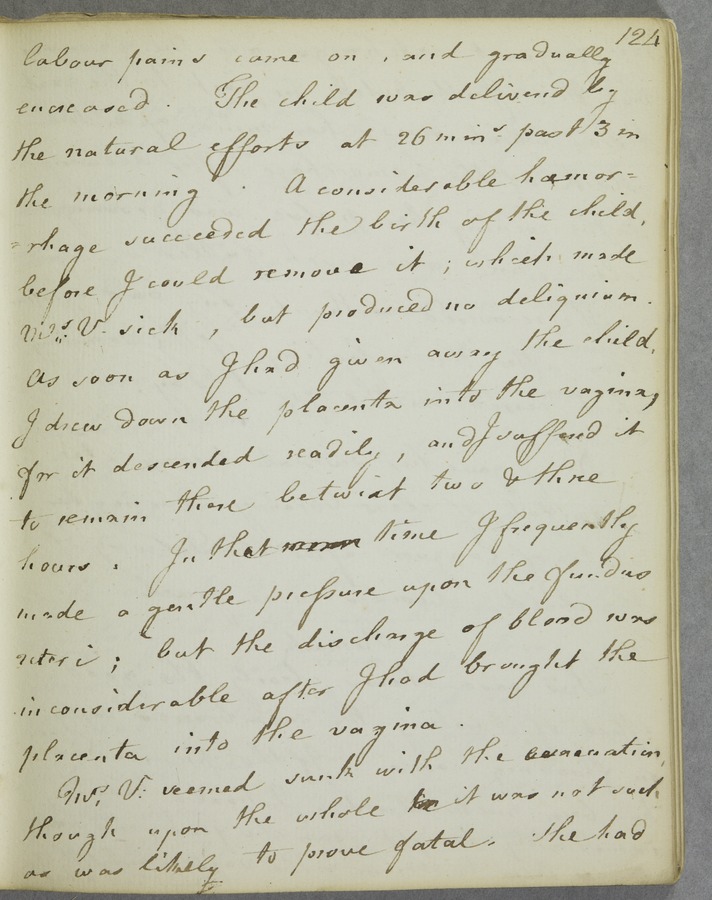 124
labour pains came on, and gradually
encreased. The child was delivered by
the natural efforts at 26 mins past 3 in
the morning. A considerable hæmor=
=rhage succeeded the birth of the child,
before I could remove it; which made
Mrs. V. sick, but produced no deliquium.
As soon as I had given away the child,
I drew down the placenta into the vagina,
for it descended readily, and I suffered it
to remain there betwixt two & three
hours. In that time I frequently
made a gentle pressure upon the fundus
uteri; but the discharge of blood was
inconsiderable after I had brought the
placenta into the vagina.
Mrs. V. seemed sunk with the evacuation,
though upon the whole it was not such
as was likely to prove fatal. She had